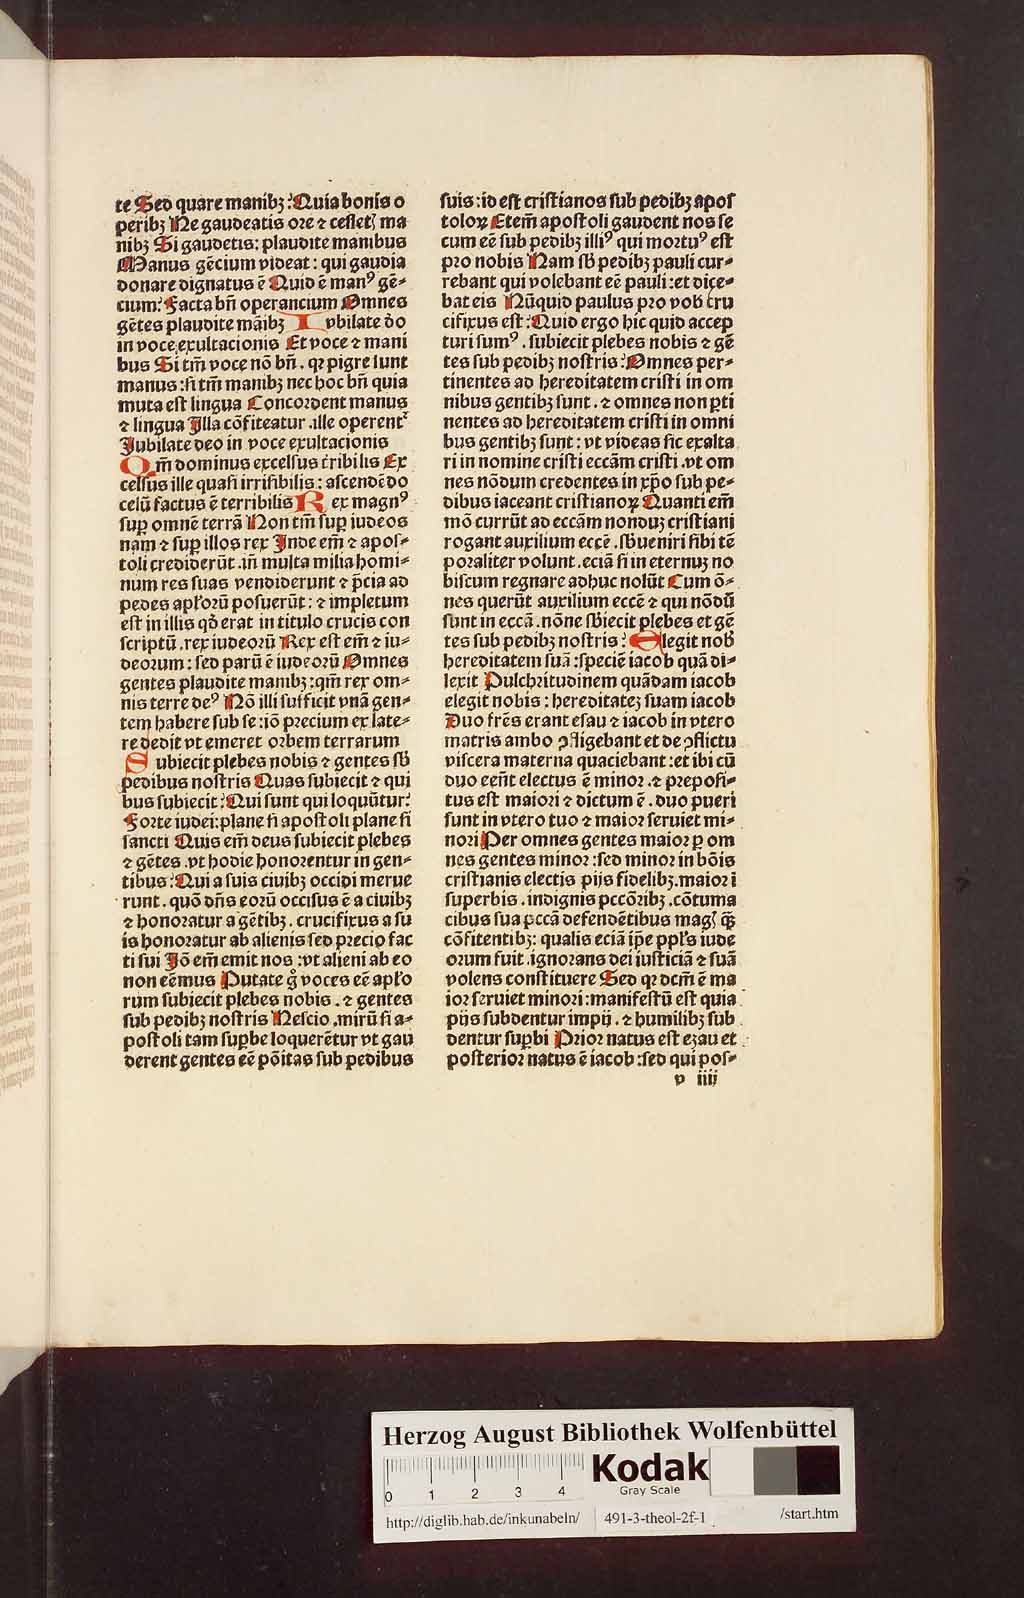 te Sed quare manibꝫ? Quia bonis o
peribꝫ Ne gaudeatis ore ⁊ cesset ma
nibꝫ Si gaudetis: plaudite manibus
Manus gẽcium videat: qui gaudia
donare dignatus ẽ Quid ẽ manꝰ gẽ-
cium: Facta bñ operancium Omnes
gẽtes plaudite mãibꝫ Iubilate deo
in voce exultacionis Et voce ⁊ mani
bus Si tm̃ voce nõ bñ. qꝛ pigre sunt
manus: si tm̃ manibꝫ nec hoc bñ quia
muta est lingua Concordent manus
⁊ lingua Illa cõfiteatur .ille operent᷑
Jubilate deo in voce exultacionis
Qm̃ dominus excelsus tribilis Ex
celsus ille quasi irrisibilis: ascendẽdo
celũ factus ẽ terribilis Rex magnꝰ
suꝑ omnẽ terrã Non tm̃ suꝑ iudeos
nam ⁊ suꝑ illos rex Inde em̃ ⁊ apos-
toli crediderũt .iñ multa milia homi-
num res suas vendiderunt ⁊ p̃cia ad
pedes apl̃orũ posuerũt: ⁊ impletum
est in illis qđ erat in titulo crucis con
scriptũ .rex iudeorũ Rex est em̃ ⁊ iu-
deorum: sed parũ ẽ iudeorũ Omnes
gentes plaudite manibꝫ: qm̃ rex om-
nis terre deꝰ Nõ illi sufficit vnã gen-
tem habere sub se: iõ precium ex late-
re dedit vt emeret orbem terrarum
Subiecit plebes nobis ⁊ gentes sb̃
pedibus nostris Quas subiecit ⁊ qui
bus subiecit? Qui sunt qui loquũtur?
Forte iudei: plane si apostoli plane si
sancti Quis em̃ deus subiecit plebes
⁊ gẽtes .vt hodie honorentur in gen-
tibus? Qui a suis ciuibꝫ occidi merue
runt. quõ dñs eorũ occisus ẽ a ciuibꝫ
⁊ honoratur a gẽtibꝫ. crucifixus a su
is honoratur ab alienis sed precio fac
ti sui Jõ em̃ emit nos: vt alieni ab eo
non eẽmus Putate g̊ voces eẽ apl̃o
rum subiecit plebes nobis. ⁊ gentes
sub pedibus nostris Nescio .mirũ si a-
postoli tam suꝑbe loquerẽtur vt gau
derent gentes eẽ põitas sub pedibus
suis: id est cristianos sub pedibꝫ apos
toloꝝ Etem̃ apostoli gaudent nos se
cum eẽ sub pedibꝫ illiꝰ qui mortuꝰ est
pro nobis Nam sb̃ pedibꝫ pauli cur-
rebant qui volebant eẽ pauli: et dice-
bat eis Nũquid paulus pro vob̃ cru
cifixus est? Quid ergo hic quid accep
turi sumꝰ. subiecit plebes nobis ⁊ gẽ
tes sub pedibꝫ nostris? Omnes per-
tinentes ad hereditatem cristi in om
nibus gentibꝫ sunt. ⁊ omnes non ꝑti
nentes ad hereditatem cristi in omni
bus gentibꝫ sunt: vt videas sic exalta
ri in nomine cristi eccãm cristi .vt om
nes nõdum credentes in xp̃o sub pe-
dibus iaceant cristianoꝝ Quanti em̃
mõ currũt ad eccãm nonduꝫ cristiani
rogant auxilium eccẽ .sb̃ueniri sibi tẽ
poraliter volunt .eciã si in eternuꝫ no
biscum regnare adhuc nolũt Cum õ-
nes querũt auxilium eccẽ ⁊ qui nõdũ
sunt in eccã. nõne sb̃iecit plebes et gẽ
tes sub pedibꝫ nostris? Elegit nob̃
hereditatem suã: speciẽ iacob quã di-
lexit Pulchritudinem quãdam iacob
elegit nobis: hereditateꝫ suam iacob
Duo fr̃es erant esau ⁊ iacob in vtero
matris ambo ꝯfligebant et de ꝯflictu
viscera materna quaciebant: et ibi cũ
duo eeñt electus ẽ minor. ⁊ preposi-
tus est maiori ⁊ dictum ẽ. duo pueri
sunt in vtero tuo ⁊ maior seruiet mi-
nori Per omnes gentes maior ꝑ om
nes gentes minor: sed minor in bõis
cristianis electis pijs fidelibꝫ. maior ĩ
superbis. indignis pccõribꝫ. cõtuma
cibus sua pccã defendẽtibus mag̃ qꝫ̃
cõfitentibꝫ: qualis eciã ip̃e ppl̃s iude
orum fuit .ignorans dei iusticiã ⁊ suã
volens constituere Sed qꝛ dcm̃ ẽ ma
ior seruiet minori: manifestũ est quia
pijs subdentur impij. ⁊ humilibꝫ sub
dentur suꝑbi Prior natus est ezau et
posterior natus ẽ iacob: sed qui pos-
v iiij
Herzog August Bibliothek Wolfenbüttel
0 1 2 3 4
Kodak
Gray Scale
http://diglib.hab.de/inkunabeln/ 491-3-theol-2f-1 /start.htm